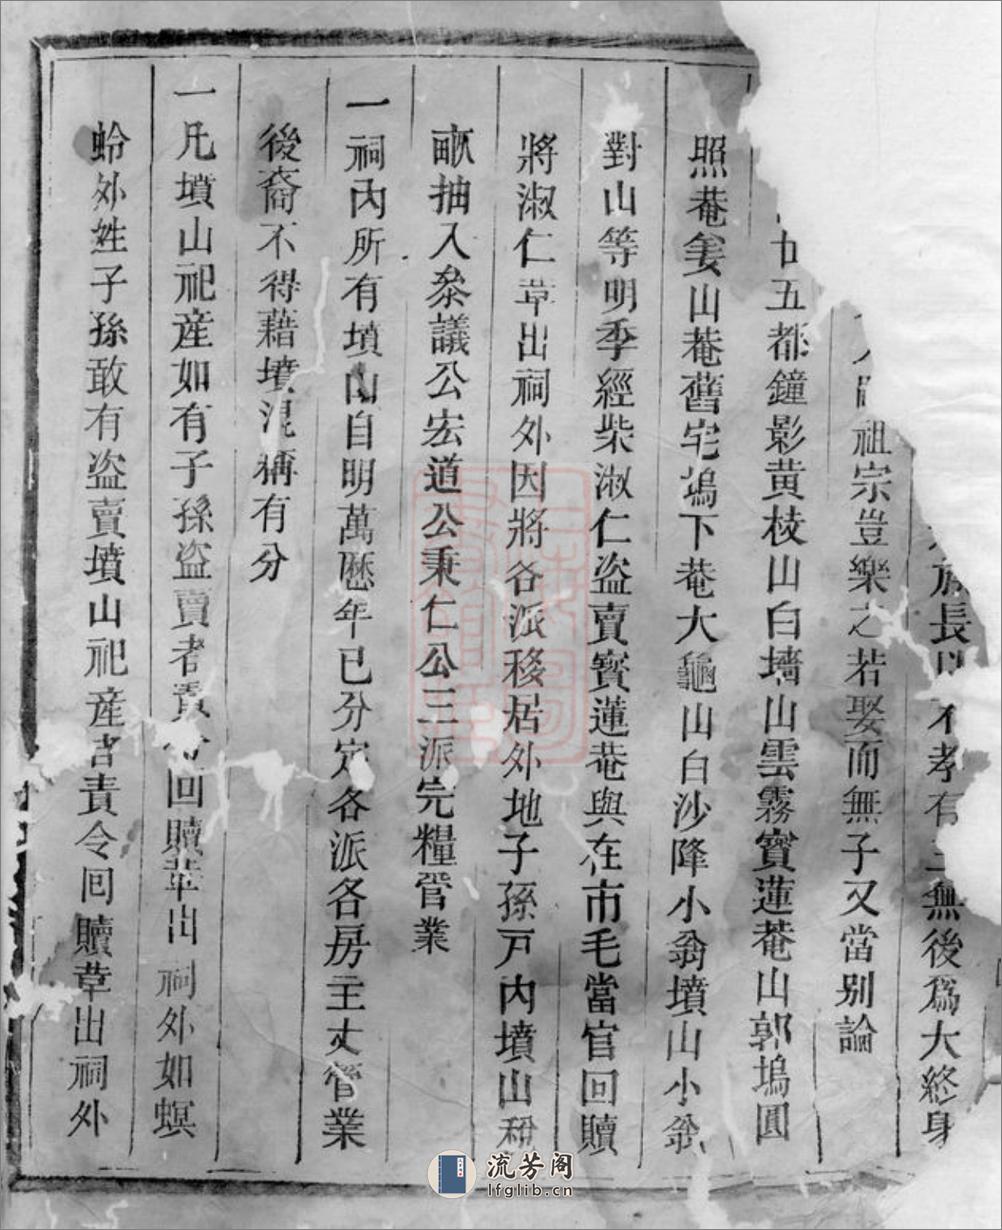 族長以不孝有三無後爲大終身
祖宗豈樂之若娶而無子又當別論
廿五都鐘影黄枝山白墻山雲霧寶蓮菴山郭塢圓
照菴姜山菴舊宅塢下菴大龜山白沙降小翁墳山小翁
對山等明季經柴淑仁盗賣寳蓮菴與在市毛當官回贖
將淑仁革出祠外因將各派移居外地子孫戸内墳山稅
畝抽入叅議公宏道公秉仁公三派完糧管業
一祠内所有墳山自明萬厯年已分定各派各房主丈管業
後裔不得藉墳混稱有分
一凡墳山祀産如有子孫盗賣者責令回贖革出祠外如螟
蛉外姓子孫敢有盗賣墳山祀産者責令回贖革出祠外
流芳阁
lfglib.cn